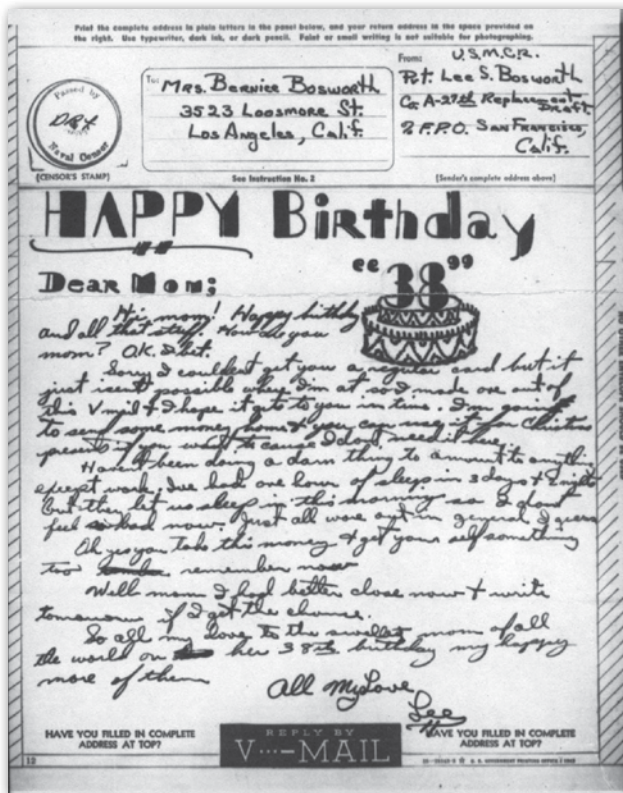 Print the complete address in plain letters in the panel below, and your return address in the space provided on
the right. Use typewriter, dark ink, or dark pencil. Faint or small writing is not suitable for photographing.
Passed by
Naval Censor
(CENSOR'S STAMP)
To: Mrs. Bernice Bosworth
3523 Loosmore St.
Los Angeles, Calif.
See Instruction No. 2
From: U.S.M.C.R.
Pvt. Lee S. Bosworth
Co A-27th Replacement
Draft
F.P.O. San Francisco,
Calif.
(Sender's complete address above)
HAPPY Birthday
"38"
Dear Mom;
Hi, mom! Happy birthday
and all that stuff. How do you
mom? O.K. I bet.
Sorry I couldn't get you a regular card but it
just isent possible where I'm at so I made one out of
this V mail + I hope it gets to you in time. I'm going
to send some money home + you can use it for Christmas
presents if you want to cause I dont need it here.
Haven't been doing a darn thing to amount to anything
except work. Ive had one hour of sleep in 3 days + 2 night
but they let us sleep in this morning so I dont
feel so bad now. Just all wore out in general I guess
Oh yes you take this money + get your self something
too remember now
Well mom I had better close now + write
tomorrow if I get the chance.
So all my love to the sweetest mom of all
the world on her 38th birthday my happy
more of them
All My Love
Lee
HAVE YOU FILLED IN COMPLETE
ADDRESS AT TOP?
REPLY BY
V···—MAIL
HAVE YOU FILLED IN COMPLETE
ADDRESS AT TOP?
12
U. S. GOVERNMENT PRINTING OFFICE